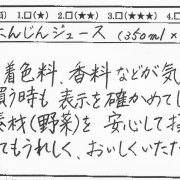 1.□(★) 2.□(★★) 3.□(★★★) 4.
んじんジュース (350ml×
着色料、香料などが気
買う時も 表示を確かめてし
素材(野菜)を 安心して
てもうれしく、おいしくいただ